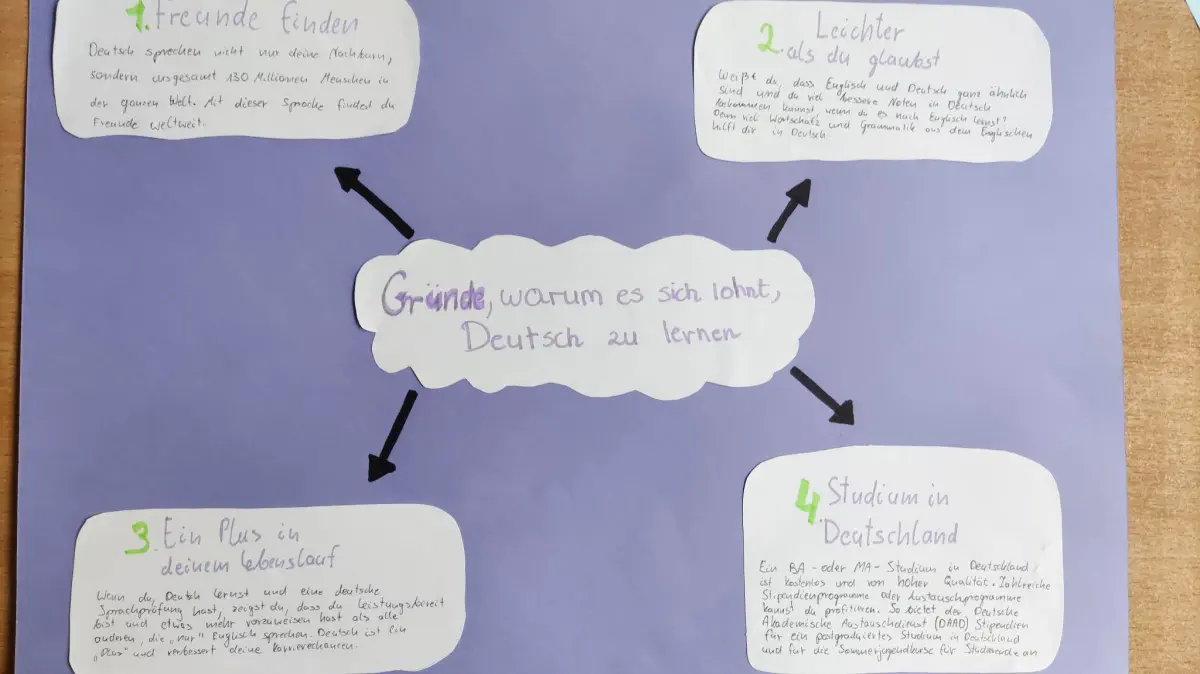 1. Freunde finden
Deutsch sprechen nicht nur deine Nachbarn,
sondern insgesamt 130 Millionen Menschen in
der ganzen Welt. Mit dieser Sprache findest du
Freunde weltweit.
2. Leichter
als du glaubst
Weißt du dass Englisch und Deutsch ganz ähnlich
sind und du viel bessere Noten in Deutsch
bekommen kannst, wenn du es nach Englisch lernst?
Denn viel Wortschatz und Grammatik aus dem Englischen
hilft dir in Deutsch.
Gründe, warum es sich lohnt,
Deutsch zu lernen
3. Ein Plus in
deinem lebenslauf
Wenn du, Deutsch lernst und eine deutsche
Sprachprüfung hast, zeigst du, dass du leistungsbereit
bist und etwas mehr vorzuweisen hast als alle
anderen, die „nur" Englisch sprechen. Deutsch ist ein
„Plus" und verbessert deine Karrierechancen.
4. Studium in
Deutschland
Ein BA- oder MA- Studium in Deutschland
ist kostenlos und von hoher Qualität. Zahlreiche
Stipendienprogramme oder Austauschprogramme
kannst du profitieren. So bietet der Deutsche
Akademische Austauschdienst (DAAD) Stipendien
für ein postgraduiertes Studium in Deutschland
und für die Sommerjugendkurse für Studierende an